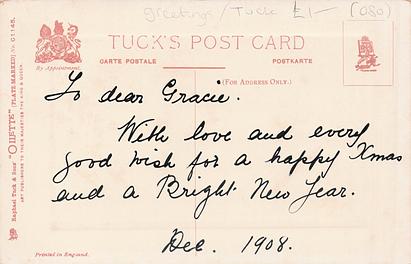 greetings / Tuck £1- (080)
TUCK'S POST CARD
CARTE POSTALE POSTKARTE
(FOR ADDRESS ONLY.)
By Appointment.
Raphael Tuck & Sons' "OILETTE" [PLATE MARKED] No. C1145.
ART PUBLISHERS TO THEIR MAJESTIES THE KING & QUEEN.
To dear Gracie.
With love and every
good wish for a happy Xmas
and a Bright New Year.
Dec. 1908.
Printed in England.